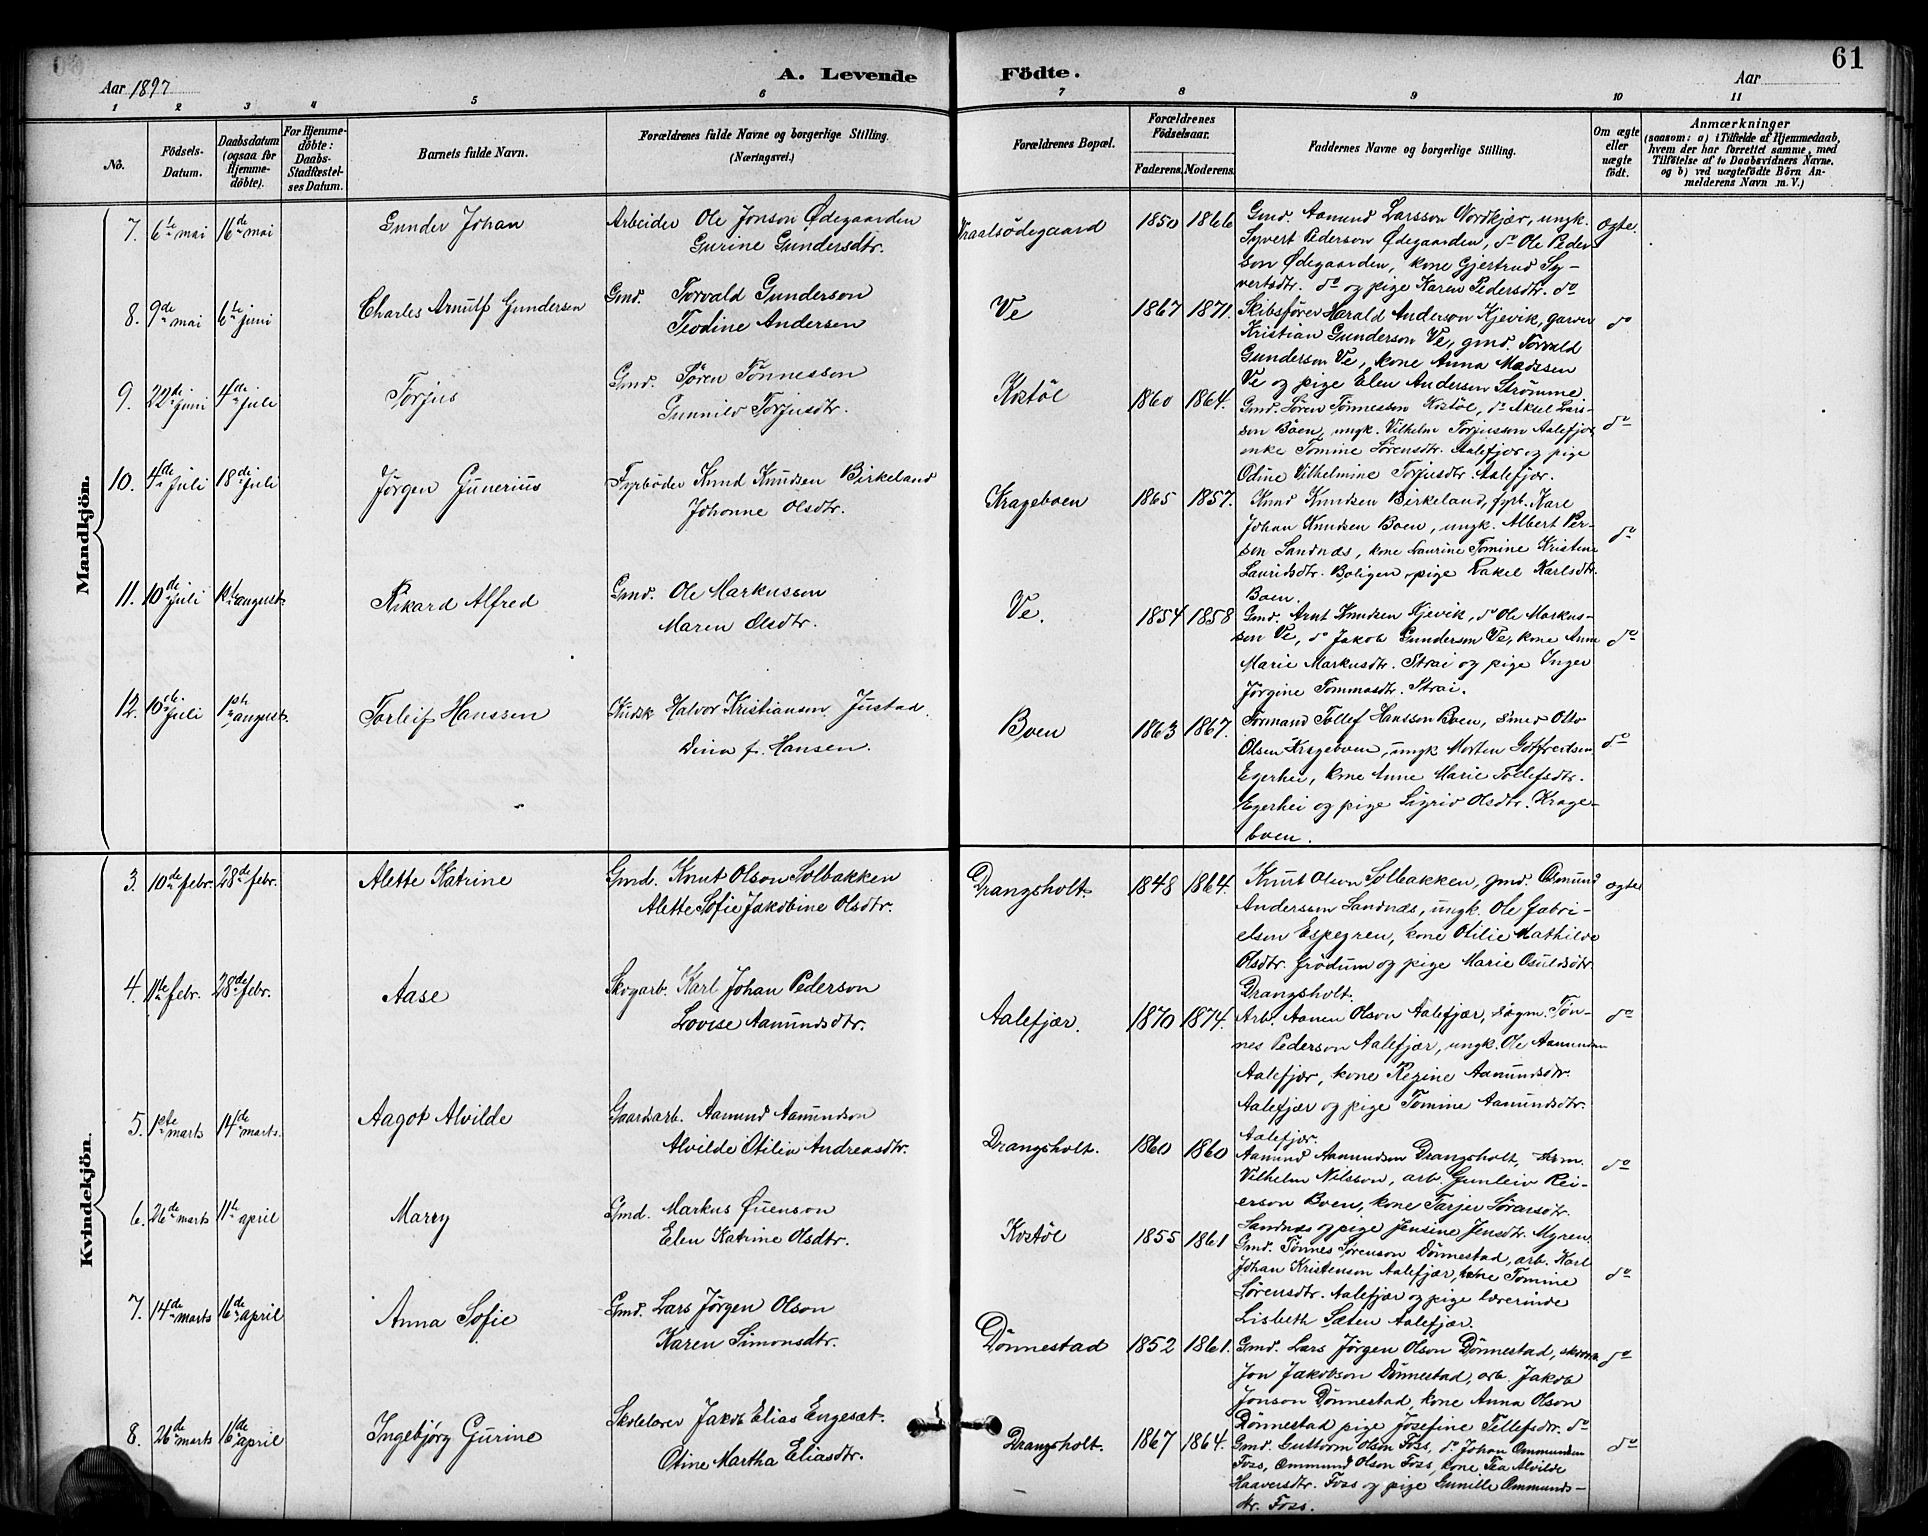 61
Aar 1897
A. Levende
Födte.
Aar
1 2 3 4 5 6 7 8 9 10 11
No.
Födsels-Datum.
Daabsdatum (ogsaa for Hjemmedöbte).
For Hjemmedöbte: Daabs-Stadfæstelses Datum.
Barnets fulde Navn.
Forældrenes fulde Navne og borgerlige Stilling. (Næringsvei.)
Forældrenes Bopæl.
Forældrenes Födselsaar.
Faderens. Moderens.
Faddernes Navne og borgerlige Stilling.
Om ægte eller uægte födt.
Anmærkninger
(saasom: a) i Tilfælde af Hjemmedaab, hvem der har forrettet samme, med Tilföielse af to Daabsvidners Navne. og b) ved uægtefödte Börn Anmelderens Navn m. V.)
Mandkjön.
7. 6te mai 16de mai Gunder Johan
Arbeider Ole Jonson Ødegaarden
Gurine Gundersdtr.
Kraalsødegaard 1850 1866
Gmd. Aamund Larsson Nordkjær, ungk.
Syvert Pederson Ødegaarden, do Ole Peder-
son Ødegaarden, kone Gjertrud Sy-
vertsdtr. do og pige Karen Pedersdtr. do
Ægte.
8. 9de mai 6te juni Charles Arnulf Gundersen
Gmd. Torvald Gunderson
Teodine Andersen
Ve 1867 1871.
Skibsfører Harald Anderson Kjevik, garver
Kristian Gunderson Ve, gmd. Torvald
Gunderson Ve, kone Anna Madssen
Ve og pige Elen Andersen Strømme
do
9. 22de juni 4de juli Torjus
Gmd. Søren Tønnesson
Gunnild Torjusdtr.
Kostøl 1860 1864.
Gmd. Søren Tønnesson Kostøl, do Aksel Lars-
son Boen, ungk. Vilhelm Torjusson Aalefjær,
enke Tomine Sørensdtr. Aalefjær og pige
Odine Vilhelmine Torjusdtr. Aalefjær.
do
10. 4de juli 18de juli Jørgen Gunerius
Fyrbøder Knud Knudsen Birkeland
Johanne Olsdtr.
Krageboen 1865 1857.
Knud Knudsen Birkeland, fyrb. Karl
Johan Knudsen Boen, ungk. Albert Per-
son Sandnæs, kone Laurine Tomine Kristine
Lauridsdtr. Boligen, pige Rakel Karlsdtr.
Boen.
do
11. 10de juli 1ste august Rikard Alfred
Gmd. Ole Markusson
Maren Olsdtr.
Ve. 1854 1858
Gmd. Arnt Knudsen Kjevik, do Ole Markus-
son Ve, do Jakob Gunderson Ve, kone Anne
Marie Markusdtr. Strai og pige Inger
Jørgine Tommasdtr. Strai.
do
12. 10de juli 1ste august. Torleif Hanssen
Kudsk Halvor Kristiansen Justad.
Dina f. Hansen.
Boen 1863 1867.
Formand Tollef Hansson Boen, smed Otto
Olsen Krageboen, ungk Morten Gotfredsen
Egerhei, kone Anne Marie Tollefsdtr.
Egerhei og pige Sigrid Olsdtr. Krage-
boen.
do
Kvindekjön.
3. 10de febr. 28de febr. Alette Katrine
Gmd. Knut Olson Solbakken
Alette Sofie Jakobine Olsdtr.
Drangsholt. 1848 1864.
Knut Olson Solbakken, gmd. Osmund
Andersson Sandnæs, ungk. Ole Gabri-
elson Espegren, kone Otilie Mathilde
Olsdtr. Frödum og pige Marie Osuldsdtr.
Drangsholt.
ægte
4. 11te febr. 28de febr. Aase
Skogarb. Karl Johan Pederson
Lovise Aamundsdtr.
Aalefjær. 1870 1874.
Arb. Aanen Olson Aalefjær, sagm. Tøn-
nes Pederson Aalefjær, ungk. Ole Aamundson
Aalefjær, kone Regine Aamundsdtr.
Aalefjær og pige Tomine Aamundsdtr.
Aalefjær.
do
5. 1ste marts 14de marts. Aagot Alvilde
Gaardarb. Aamund Aamundson
Alvilde Otilia Andreasdtr.
Drangsholt. 1860 1860
Aamund Aamundsen Drangsholt,
Vilhelm Nilsson, arb. Gunleiv Rei-
erson Boen, kone Tarjer Sørensdtr.
Sandnæs og pige Jensine Jensdtr. Myren.
do
6. 26de marts 11te april Marry
Gmd. Markus Øuenson
Elen Katrine Olsdtr.
Kostøl 1855 1861
Gmd. Tønnes Sørenson Dønnestad, arb. Karl
Johan Kristenson Aalefjær, kone Tomine
Sørensdtr. Aalefjær og pige lærerinde
Lisbeth Sæten Aalefjær.
do
7. 14de marts 16de april Anna Sofie
Gmd. Lars Jørgen Olson
Karen Simonsdtr.
Dønnestad 1852 1861.
Gmd. Lars Jørgen Olson Dønnestad,
Jon Jakobson Dønnestad, arb. Jakob
Jonson Dønnestad, kone Anna Olson
Dønnestad pige Josefine Tellefsdr. do
do
8. 26de marts 16de april Ingebjørg Gurine
Skolelærer Jakob Elias Engesæt.
Otine Martha Eliasdtr.
Drangsholt. 1867 1864.
Gmd. Guttorm Olson Foss, do Johan Ommundsen
Foss, Ommund Olson Foss, kone Tea Alvilde
Haaversdtr. Foss og pige Gunille Ommunds-
dtr. Foss.
do